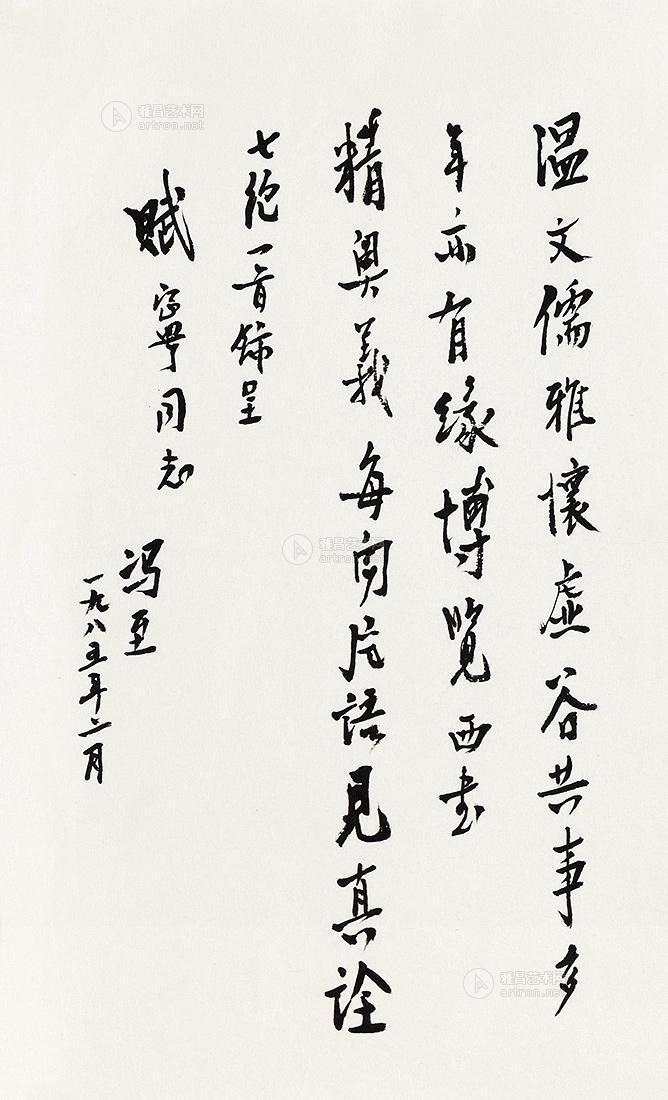 温文儒雅懷虚谷共事多
年亦有缘博覽西書
精奥義每向片語見真詮
七绝一首錄呈
赋寧同志
冯至
一九八五年二月
雅昌艺术网
artron.net
雅昌艺术网
artron.net
雅昌艺术网
artron.net